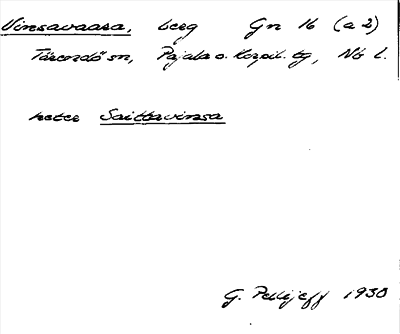 Vinsavaara, berg Gn 16 (a 2)
Tärendö sn, Pajala o. Korpil. tg, Nb l.
heter Saittavinsa
G. Pellijeff 1930